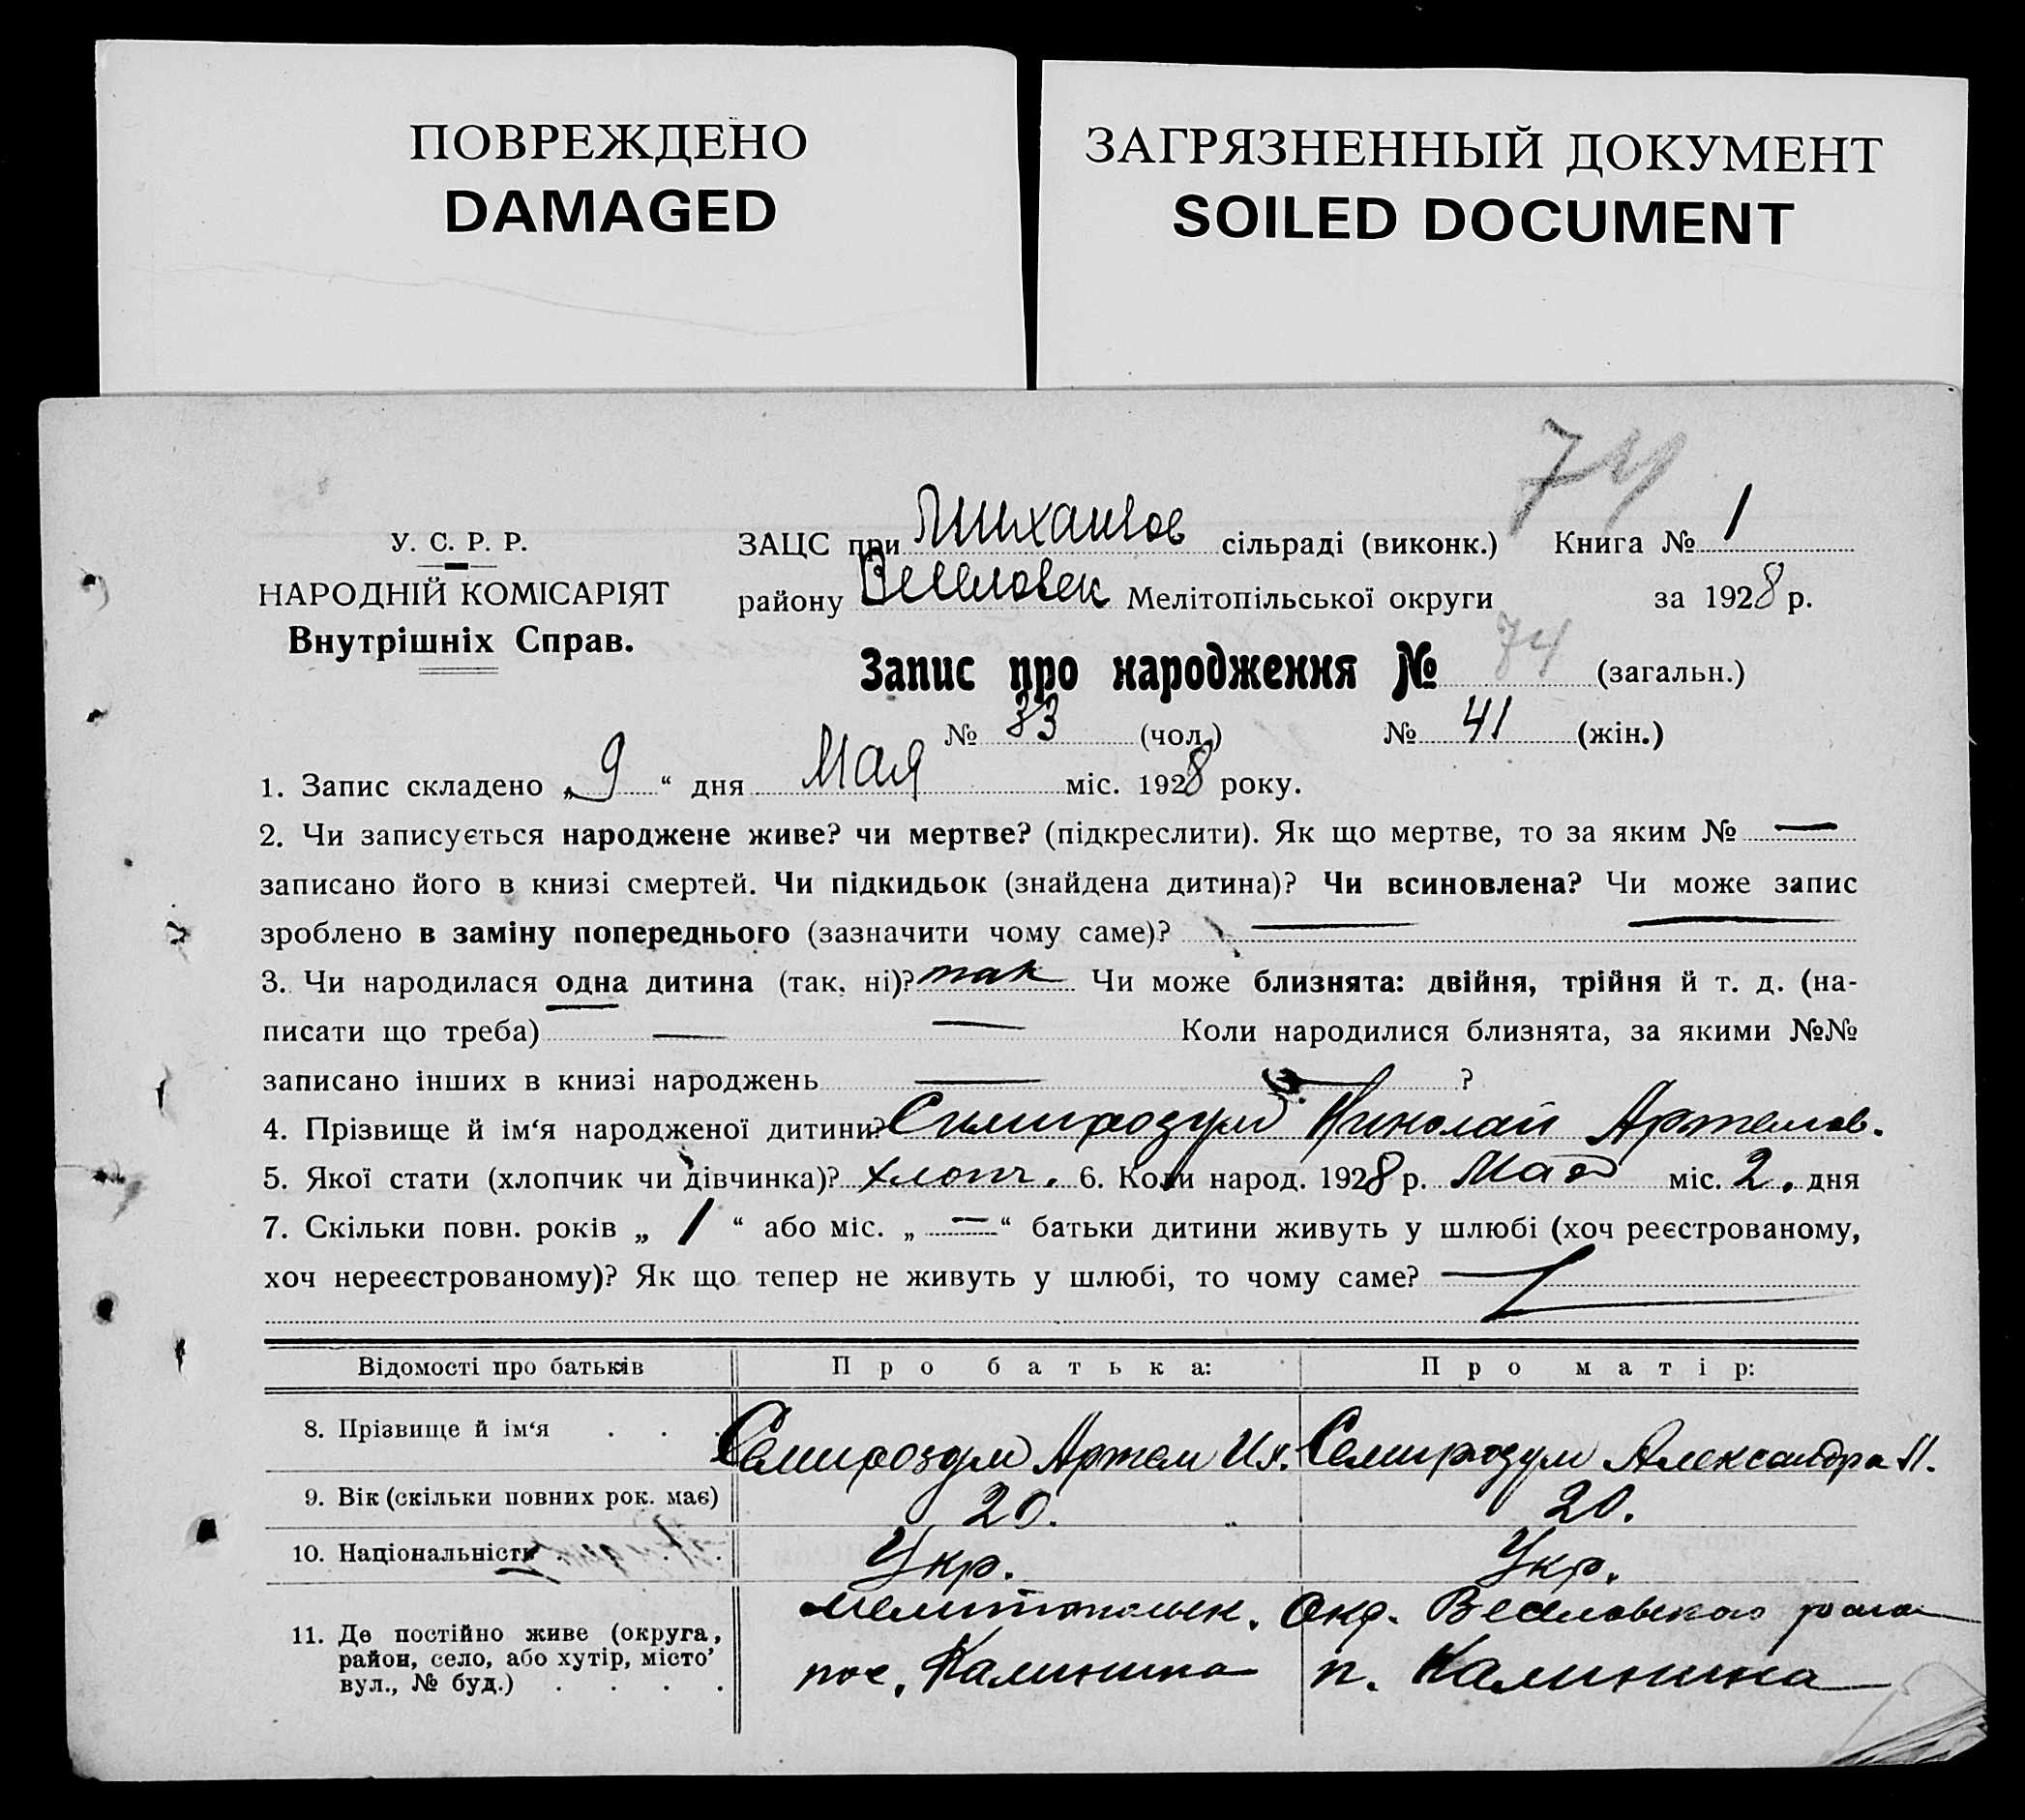 ПОВРЕЖДЕНО
DAMAGED
ЗАГРЯЗНЕННЫЙ ДОКУМЕНТ
SOILED DOCUMENT
74
У. С. Р. Р.
НАРОДНІЙ КОМІСАРІЯТ
Внутрішніх Справ.
ЗАЦС при Михайлов сільраді (виконк.) Книга № 1
району Веселовск Мелітопільської округи за 1928 р.
Запис про народження № 74 (загальн.)
№ 33 (чол.) № 41 (жін.)
1. Запис складено „9“ дня Мая міс. 1928 року.
2. Чи записується народжене живе? чи мертве? (підкреслити). Як що мертве, то за яким № —
записано його в книзі смертей. Чи підкидьок (знайдена дитина)? Чи всиновлена? Чи може запис
зроблено в заміну попереднього (зазначити чому саме)? — —
3. Чи народилася одна дитина (так, ні)? так Чи може близнята: двійня, трійня й т. д. (на-
писати що треба) — — Коли народилися близнята, за якими №№
записано інших в книзі народжень — — ?
4. Прізвище й ім‘я народженої дитини? Симирозум Николай Артемов.
5. Якої стати (хлопчик чи дівчинка)? хлопч. 6. Коли народ. 1928 р. Мая міс. 2. дня
7. Скільки повн. років „ 1 “ або міс. „ — “ батьки дитини живуть у шлюбі (хоч реєстрованому,
хоч нереєстрованому)? Як що тепер не живуть у шлюбі, то чому саме? —
Відомості про батьків Про батька: Про матір:
8. Прізвище й ім‘я . . . Семирозум Артем Их. Семирозум Александра П.
9. Вік (скільки повних рок. має) 20. 20.
10. Національність . . . Укр. Укр.
11. Де постійно живе (округа,
район, село, або хутір, місто’
вул., № буд.) . . . .
Мелитопольск. Окр. Веселовского
пос. Калинина п. Калинина